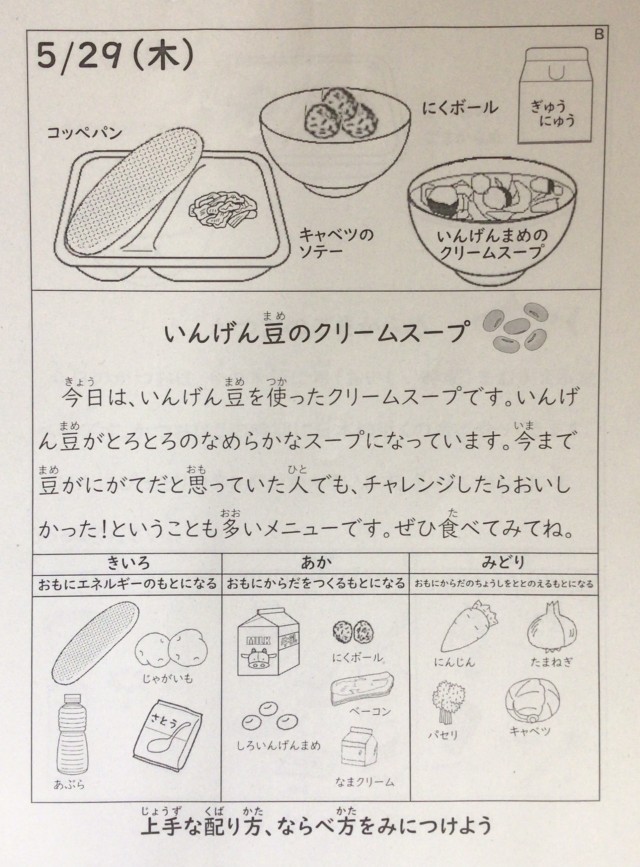 B
5/29(木)
にくボール
ぎゅう
にゅう
コッペパン
キャベツの
ソテー
いんげんまめの
クリームスープ
いんげん豆のクリームスープ
まめ
今日は、いんげん豆を使ったクリームスープです。いんげ
きょう まめ つか
ん豆がとろとろのなめらかなスープになっています。今まで
まめ いま
豆がにがてだと思っていた人でも、チャレンジしたらおいし
まめ おも ひと
かった!ということも多いメニューです。ぜひ食べてみてね。
おお た
きいろ
おもにエネルギーのもとになる
あか
おもにからだをつくるもとになる
みどり
おもにからだのちょうしをととのえるもとになる
じゃがいも
さとう
あぶら
MILK
牛乳
にくボール
ベーコン
しろいんげんまめ
なまクリーム
にんじん
たまねぎ
パセリ
キャベツ
上手な配り方、ならべ方をみにつけよう
じょうず くば かた かた